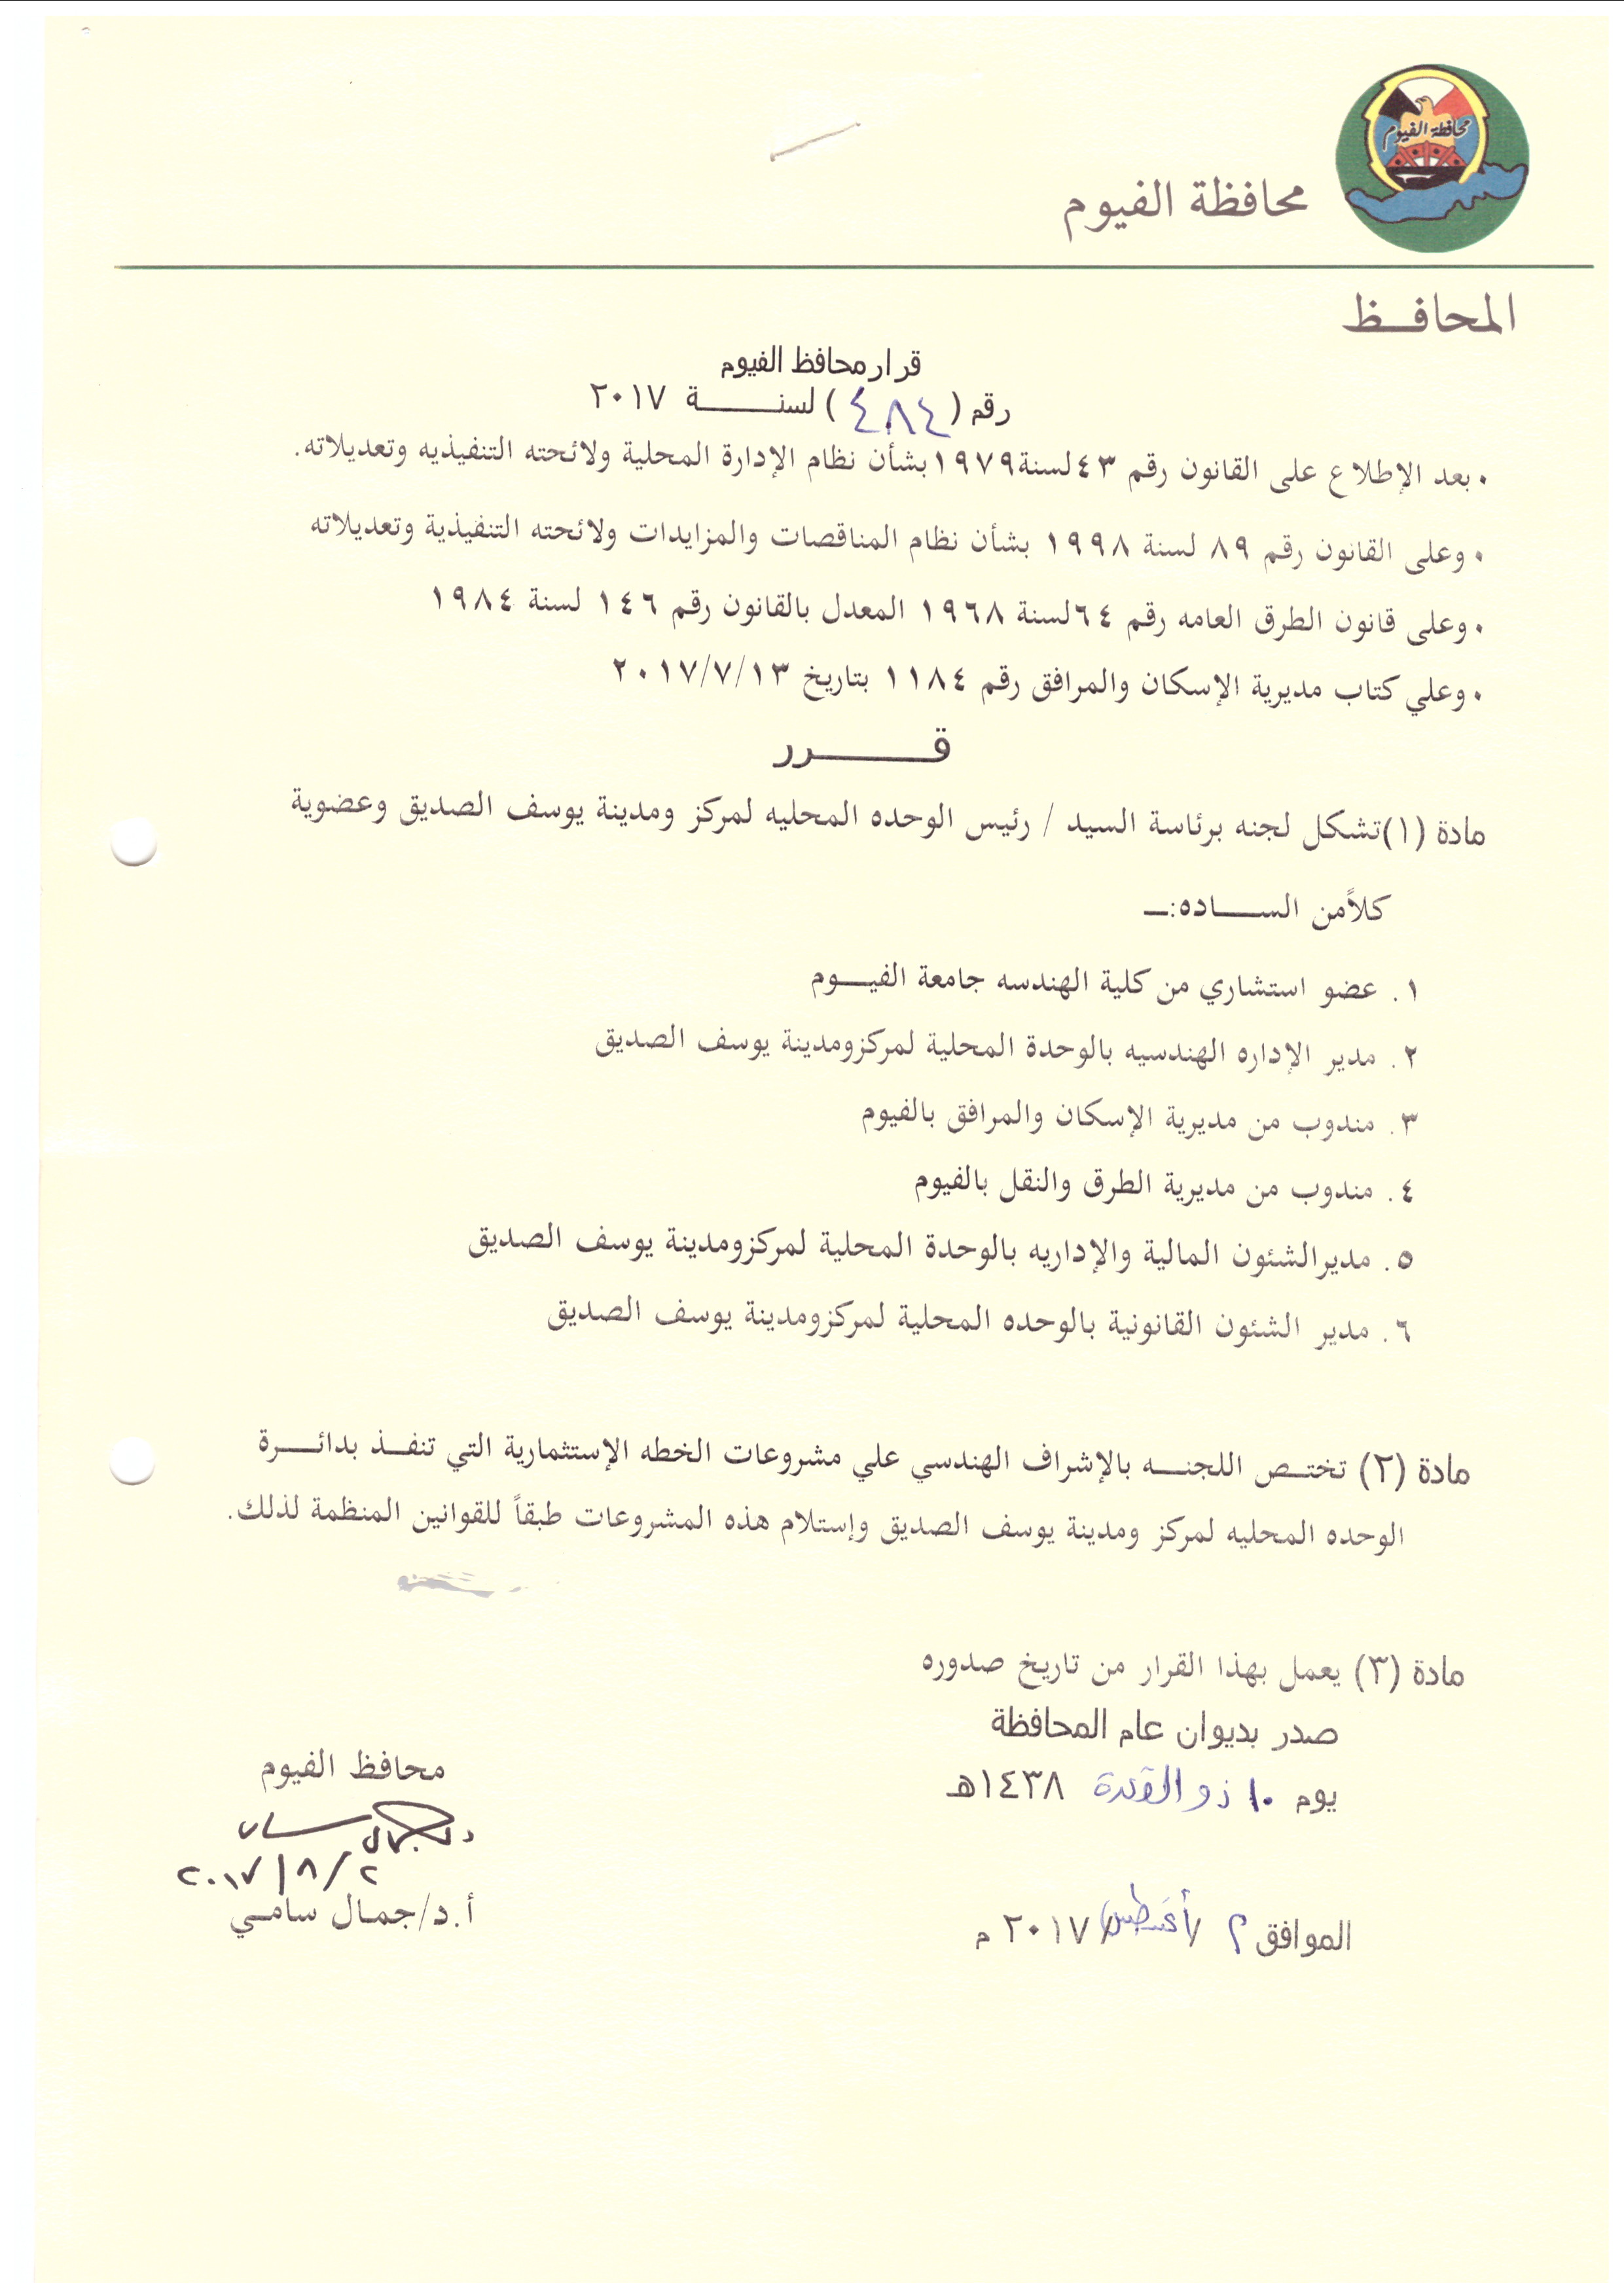 محافظة الفيوم
محافظة الفيوم
المحافــظ
قرار محافظ الفيوم
رقم (٤٨٤) لسنــــــة ٢٠١٧
• بعد الإطلاع على القانون رقم ٤٣ لسنة ١٩٧٩ بشأن نظام الإدارة المحلية ولائحته التنفيذيه وتعديلاته.
• وعلى القانون رقم ٨٩ لسنة ١٩٩٨ بشأن نظام المناقصات والمزايدات ولائحته التنفيذية وتعديلاته
• وعلى قانون الطرق العامه رقم ٦٤ لسنة ١٩٦٨ المعدل بالقانون رقم ١٤٦ لسنة ١٩٨٤
• وعلي كتاب مديرية الإسكان والمرافق رقم ١١٨٤ بتاريخ ٢٠١٧/٧/١٣
قـــــــــرر
مادة (١) تشكل لجنه برئاسة السيد / رئيس الوحده المحليه لمركز ومدينة يوسف الصديق وعضوية
كلاً من الســـــاده:ـ
١. عضو استشاري من كلية الهندسه جامعة الفيـــوم
٢. مدير الإداره الهندسيه بالوحدة المحلية لمركزومدينة يوسف الصديق
٣. مندوب من مديرية الإسكان والمرافق بالفيوم
٤. مندوب من مديرية الطرق والنقل بالفيوم
٥. مديرالشئون المالية والإداريه بالوحدة المحلية لمركزومدينة يوسف الصديق
٦. مدير الشئون القانونية بالوحده المحلية لمركزومدينة يوسف الصديق
مادة (٢) تختــص اللجنـــه بالإشراف الهندسي علي مشروعات الخطه الإستثمارية التي تنفــذ بدائــــرة
الوحده المحليه لمركز ومدينة يوسف الصديق وإستلام هذه المشروعات طبقاً للقوانين المنظمة لذلك.
مادة (٣) يعمل بهذا القرار من تاريخ صدوره
صدر بديوان عام المحافظة
يوم ١٠ ذو القعدة ١٤٣٨هـ
الموافق ٢ / أغسطس / ٢٠١٧ م
محافظ الفيوم
٢٠١٧/٨/٢
أ.د/جمـال سامـي